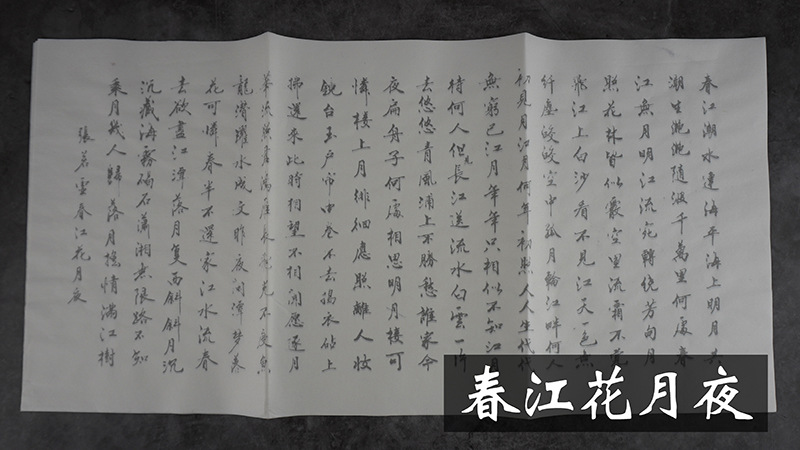 春江潮水連海平海上明月共
潮生灩灩隨波千萬里何處春
江無月明江流宛轉繞芳甸月
照花林皆似霰空里流霜不覺
飛江上白沙看不見江天一色無
纤塵皎皎空中孤月輪江畔何人
初見月江月何年初照人人生代代
無窮已江月年年只相似不知江月
待何人但見長江送流水白雲一片
去悠悠青楓浦上不勝愁誰家今
夜扁舟子何處相思明月樓可
憐樓上月徘徊應照離人妝
鏡台玉户帘中卷不去搗衣砧上
拂還來此時相望不相聞愿逐月
華流照君鴻雁長飛光不度魚
龍潛躍水成文昨夜閑潭夢落
花可憐春半不還家江水流春
去欲盡江潭落月复西斜斜月沉
沉藏海霧碣石瀟湘無限路不知
乘月幾人歸落月搖情滿江樹
張若虛春江花月夜
春江花月夜